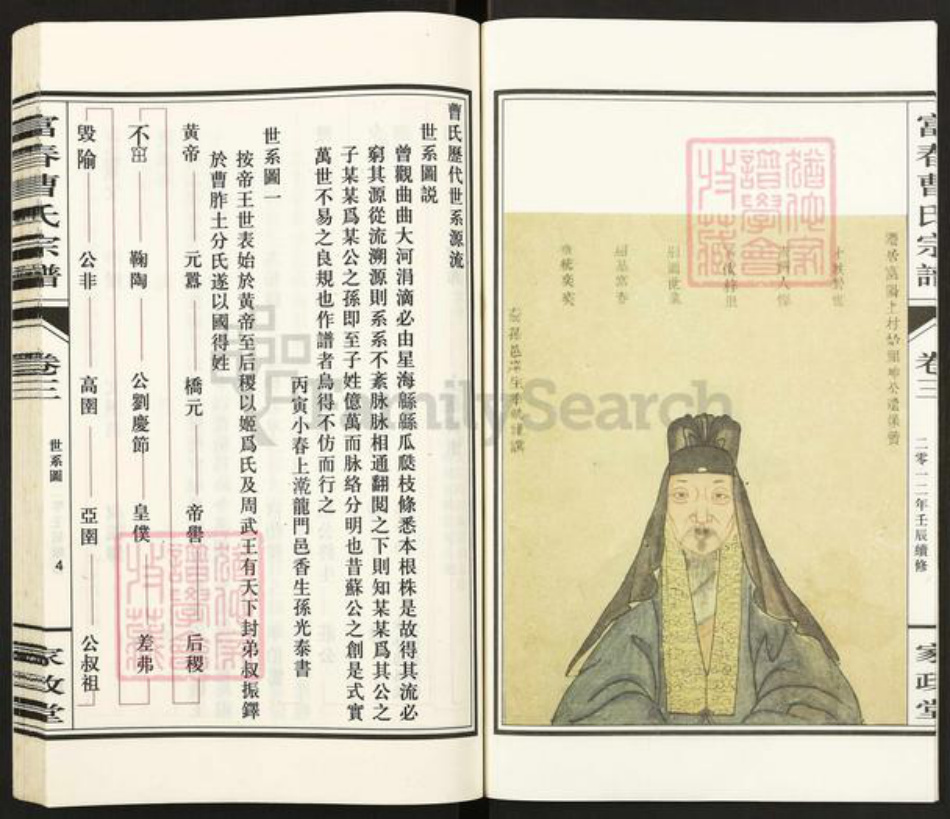 富春曹氏宗譜
卷三
二零一二年壬辰續修
家政堂
曹氏歷代世系源流
世系圖説
曾觀曲曲大河涓滴必由星海緜緜瓜瓞枝條悉本根株是故得其流必
窮其源從流溯源則系系不紊脉脉相通翻閲之下則知某某爲其公之
子某某爲某公之孫即至子姓億萬而脉絡分明也昔蘇公之創是式實
萬世不易之良規也作譜者烏得不仿而行之
丙寅小春上澣龍門邑香生孫光泰書
世系圖一
按帝王世表始於黄帝至后稷以姬爲氏及周武王有天下封弟叔振鐸
於曹胙土分氏遂以國得姓
黄帝 元囂 橋元 帝嚳 后稷
不窋 鞠陶 公劉慶節 皇僕 差弗
毀隃 公非 高圉 亞圉 公叔祖
富春曹氏宗譜
卷三
世系圖
4
家政堂
FamilySearch